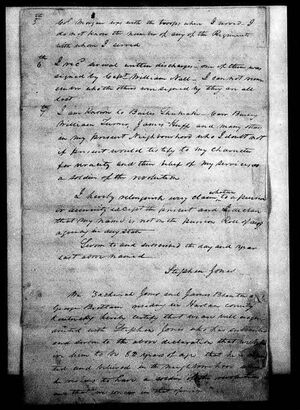 5th Col. Morgan was with the troops when I served. I
do not know the number of any of the Regiments
with whom I served
6th I recd several written discharges - one of them was
signed by Capt. William Nall. I can not rem
ember who the others were signed by they are all
lost
7th I am known to Bailes Shumate Carr Bailey
William Turner James Huff and many others
in my present neighbourhood who I doubt not
if present would testify to my character
for veracity and their belief of my services as
a soldier of the revolution
I hereby relinquish every claim whatever to a pension
or annuity except the present and declare
that my name is not on the pension Roll of any
agency in any State
Sworn to and subscribed the day and year
last above named
Stephen Jones
We Zachariah Jones and James Brittain &
George Brittain residing in Harlan County
Kentucky hereby certify that we are well acqua
inted with Stephen Jones who has subscribed
and sworn to the above declaration that we
him to be 82 years of age that he is
and believed in the neighbourhood where
he resides to have a soldier of the revolution
and that we concur in that opinion